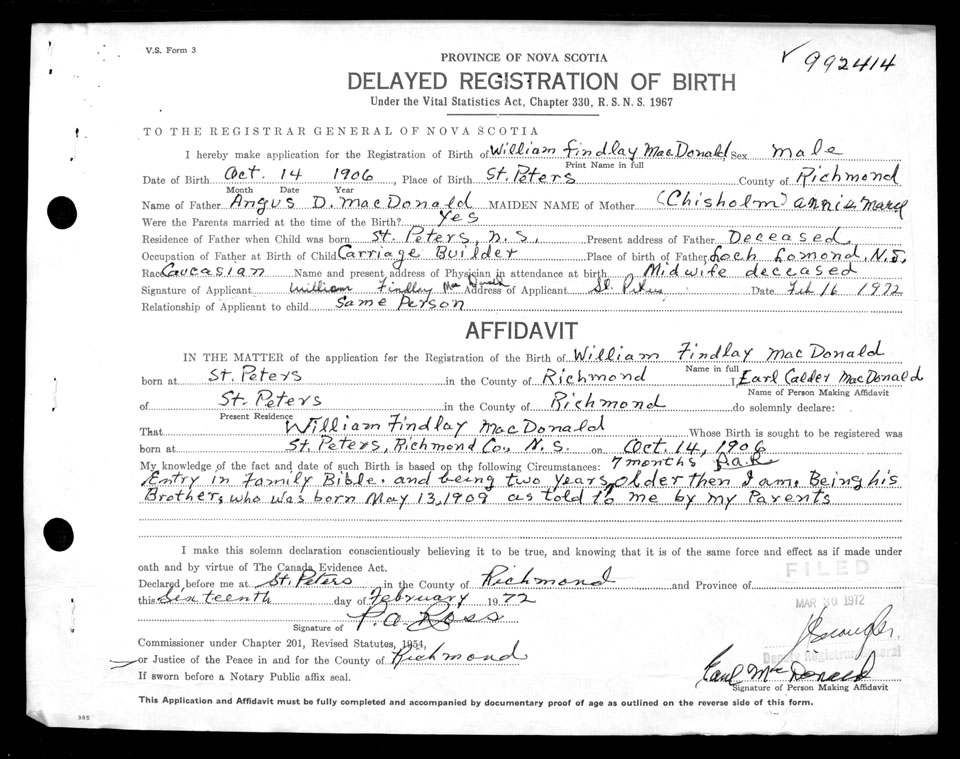 V.S. Form 3
992414
PROVINCE OF NOVA SCOTIA
DELAYED REGISTRATION OF BIRTH
Under the Vital Statistics Act, Chapter 330, R.S.N.S. 1967
TO THE REGISTRAR GENERAL OF NOVA SCOTIA
I hereby make application for the Registration of Birth of William Findlay MacDonald Sex male
Print Name in full
Date of Birth Oct. 14 1906, Place of Birth St. Peters County of Richmond
Month Date Year
Name of Father Angus D. MacDonald MAIDEN NAME of Mother (Chisholm) annie Mary
Were the Parents married at the time of the Birth? Yes
Residence of Father when Child was born St. Peters, N.S. Present address of Father Deceased
Occupation of Father at Birth of Child Carriage Builder Place of birth of Father Loch Lomond, N.S.
Race Caucasian Name and present address of Physician in attendance at birth Midwife deceased
Signature of Applicant William Findlay Mac Donald Address of Applicant St. Peters Date Feb 16 1972
Relationship of Applicant to child Same Person
AFFIDAVIT
IN THE MATTER of the application for the Registration of the Birth of William Findlay MacDonald
Name in full
born at St. Peters in the County of Richmond I, Earl Calder MacDonald
Name of Person Making Affidavit
of St. Peters in the County of Richmond do solemnly declare:
Present Residence
That William Findlay MacDonald Whose Birth is sought to be registered was
born at St. Peters, Richmond Co., N.S. on Oct. 14, 1906
My knowledge of the fact and date of such Birth is based on the following Circumstances: 7 months P.a.R
Entry in Family Bible. and being two years, older then I am. Being his
Brother, who was born May 13, 1909 as told to me by my Parents
I make this solemn declaration conscientiously believing it to be true, and knowing that it is of the same force and effect as if made under
oath and by virtue of The Canada Evidence Act.
Declared before me at St. Peters in the County of Richmond and Province of
this Sixteenth day of February 1972
FILED
MAR 30 1972
Deputy Registrar General
P.a. Ross
Signature of
Commissioner under Chapter 201, Revised Statutes, 1954,
or Justice of the Peace in and for the County of Richmond
If sworn before a Notary Public affix seal.
Earl Mac Donald
Signature of Person Making Affidavit
This Application and Affidavit must be fully completed and accompanied by documentary proof of age as outlined on the reverse side of this form.